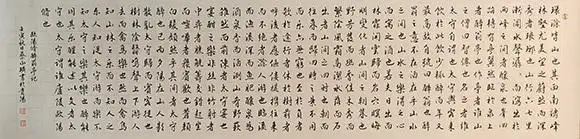 環滁皆山也其西南諸峰
林壑尤美望之蔚然而深
秀者琅琊也山行六七里
漸聞水聲潺潺而瀉出于
兩峰之間者釀泉也峰回
路轉有亭翼然臨于泉上
者醉翁亭也作亭者誰山
之僧智仙也名之者誰太
守自謂也太守與客來飲
于此飲少輒醉而年又
最高故自號曰醉翁也醉翁
之意不在酒在乎山水
之間也山水之樂得之心
而寓之酒也若夫日出而
林霏開雲歸而岩穴暝晦
明變化者山間之朝暮也
野芳發而幽香佳木秀而
繁陰風霜高潔水落而石
出者山間之四時也朝而
往暮而歸四時之景不同
而樂亦無窮也至于負者
歌于途行者休于樹前者
呼後者應傴僂提攜往來
而不絕者滁人游也臨溪
而漁溪深而魚肥釀泉為
酒泉香而酒洌山肴野蔌
雜然而前陳者太守宴也
宴酣之樂非絲非竹射者
中弈者勝觥籌交錯起坐
而喧嘩者眾賓歡也蒼顏
白髮頹然乎其間者太守
醉也已而夕陽在山人影
散亂太守歸而賓客從也
樹林陰翳鳴聲上下游人
去而禽鳥樂也然而禽鳥
知山林之樂而不知人之
樂人知從太守游而樂而不
知太守之樂其樂也醉能
同其樂醒能述以文者太
守也太守謂誰廬陵歐陽
修也
歐陽修醉翁亭記
壬寅秋